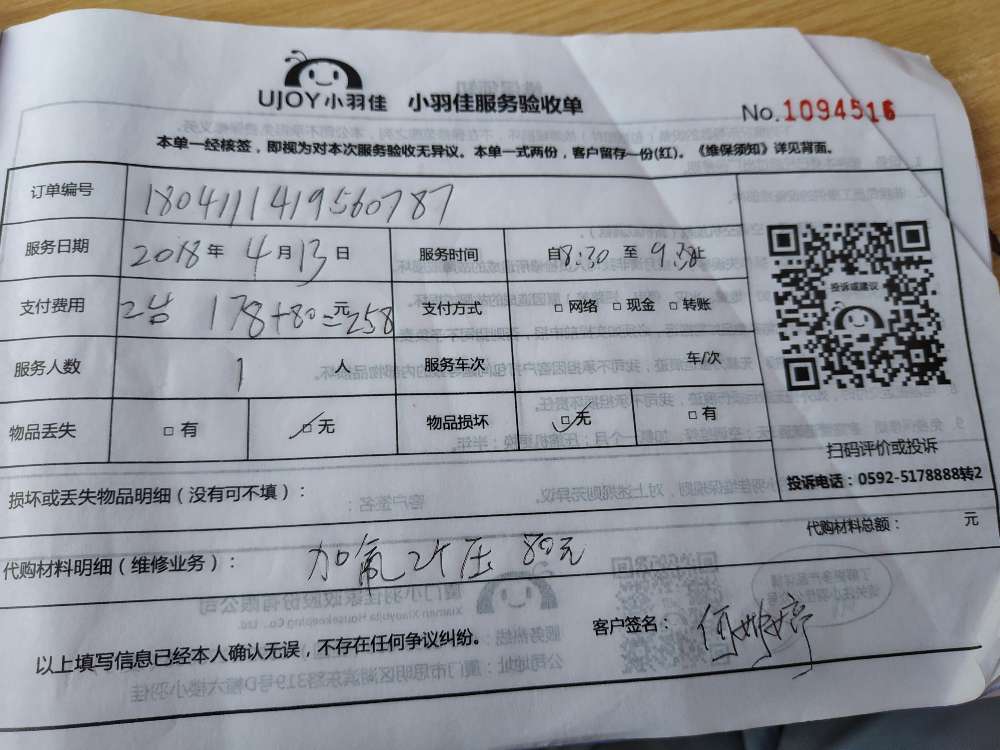 UJOY小羽佳 小羽佳服务验收单
No.1094516
本单一经核签，即视为对本次服务验收无异议。本单一式两份，客户留存一份(红)。《维保须知》详见背面。
订单编号 1804111419560787
服务日期 2018年4月13日 服务时间 自8:30至9:30止
支付费用 2台 178+80=元258 支付方式 □网络 □现金 □转账
服务人数 1人 服务车次 车/次
物品丢失 □有 □无 物品损坏 □无 □有
投诉或建议
扫码评价或投诉
投诉电话：0592-5178888转2
损坏或丢失物品明细（没有可不填）：
代购材料总额： 元
代购材料明细（维修业务）： 加氟 2个压 80元
以上填写信息已经本人确认无误，不存在任何争议纠纷。
客户签名： 何婷婷